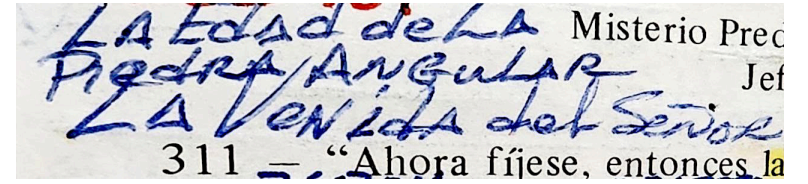 LA Edad de LA
Misterio Pred
Piedra ANGULAR
Jef
LA VENida del SEÑOR
311 — “Ahora fíjese, entonces la